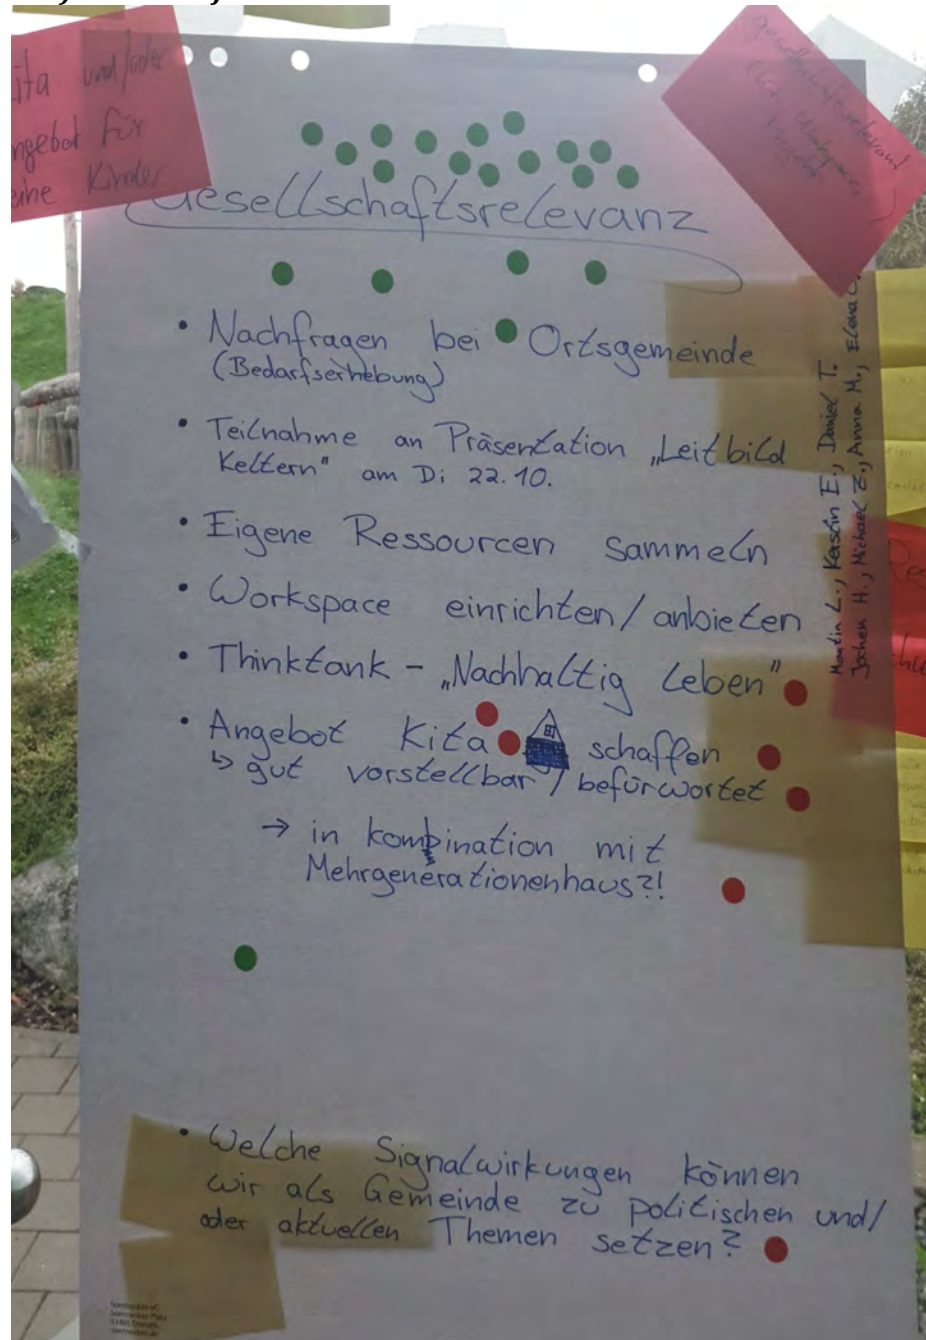 ita und/oder
ngebot für
eine Kinder
gesellschaftsrelevant
Gesellschaftsrelevanz
• Nachfragen bei Ortsgemeinde
(Bedarfserhebung)
• Teilnahme an Präsentation „Leitbild
Keltern" am Di 22.10.
• Eigene Ressourcen sammeln
• Workspace einrichten/anbieten
• Thinktank – „Nachhaltig Leben"
• Angebot Kita schaffen
↳ gut vorstellbar / befürwortet
→ in kombination mit
Mehrgenerationenhaus?!
• Welche Signalwirkungen können
wir als Gemeinde zu politischen und/
oder aktuellen Themen setzen?
Martin L., Kerstin E., Daniel T.
Jochen H., Michael Z., Anna M., Elena C.